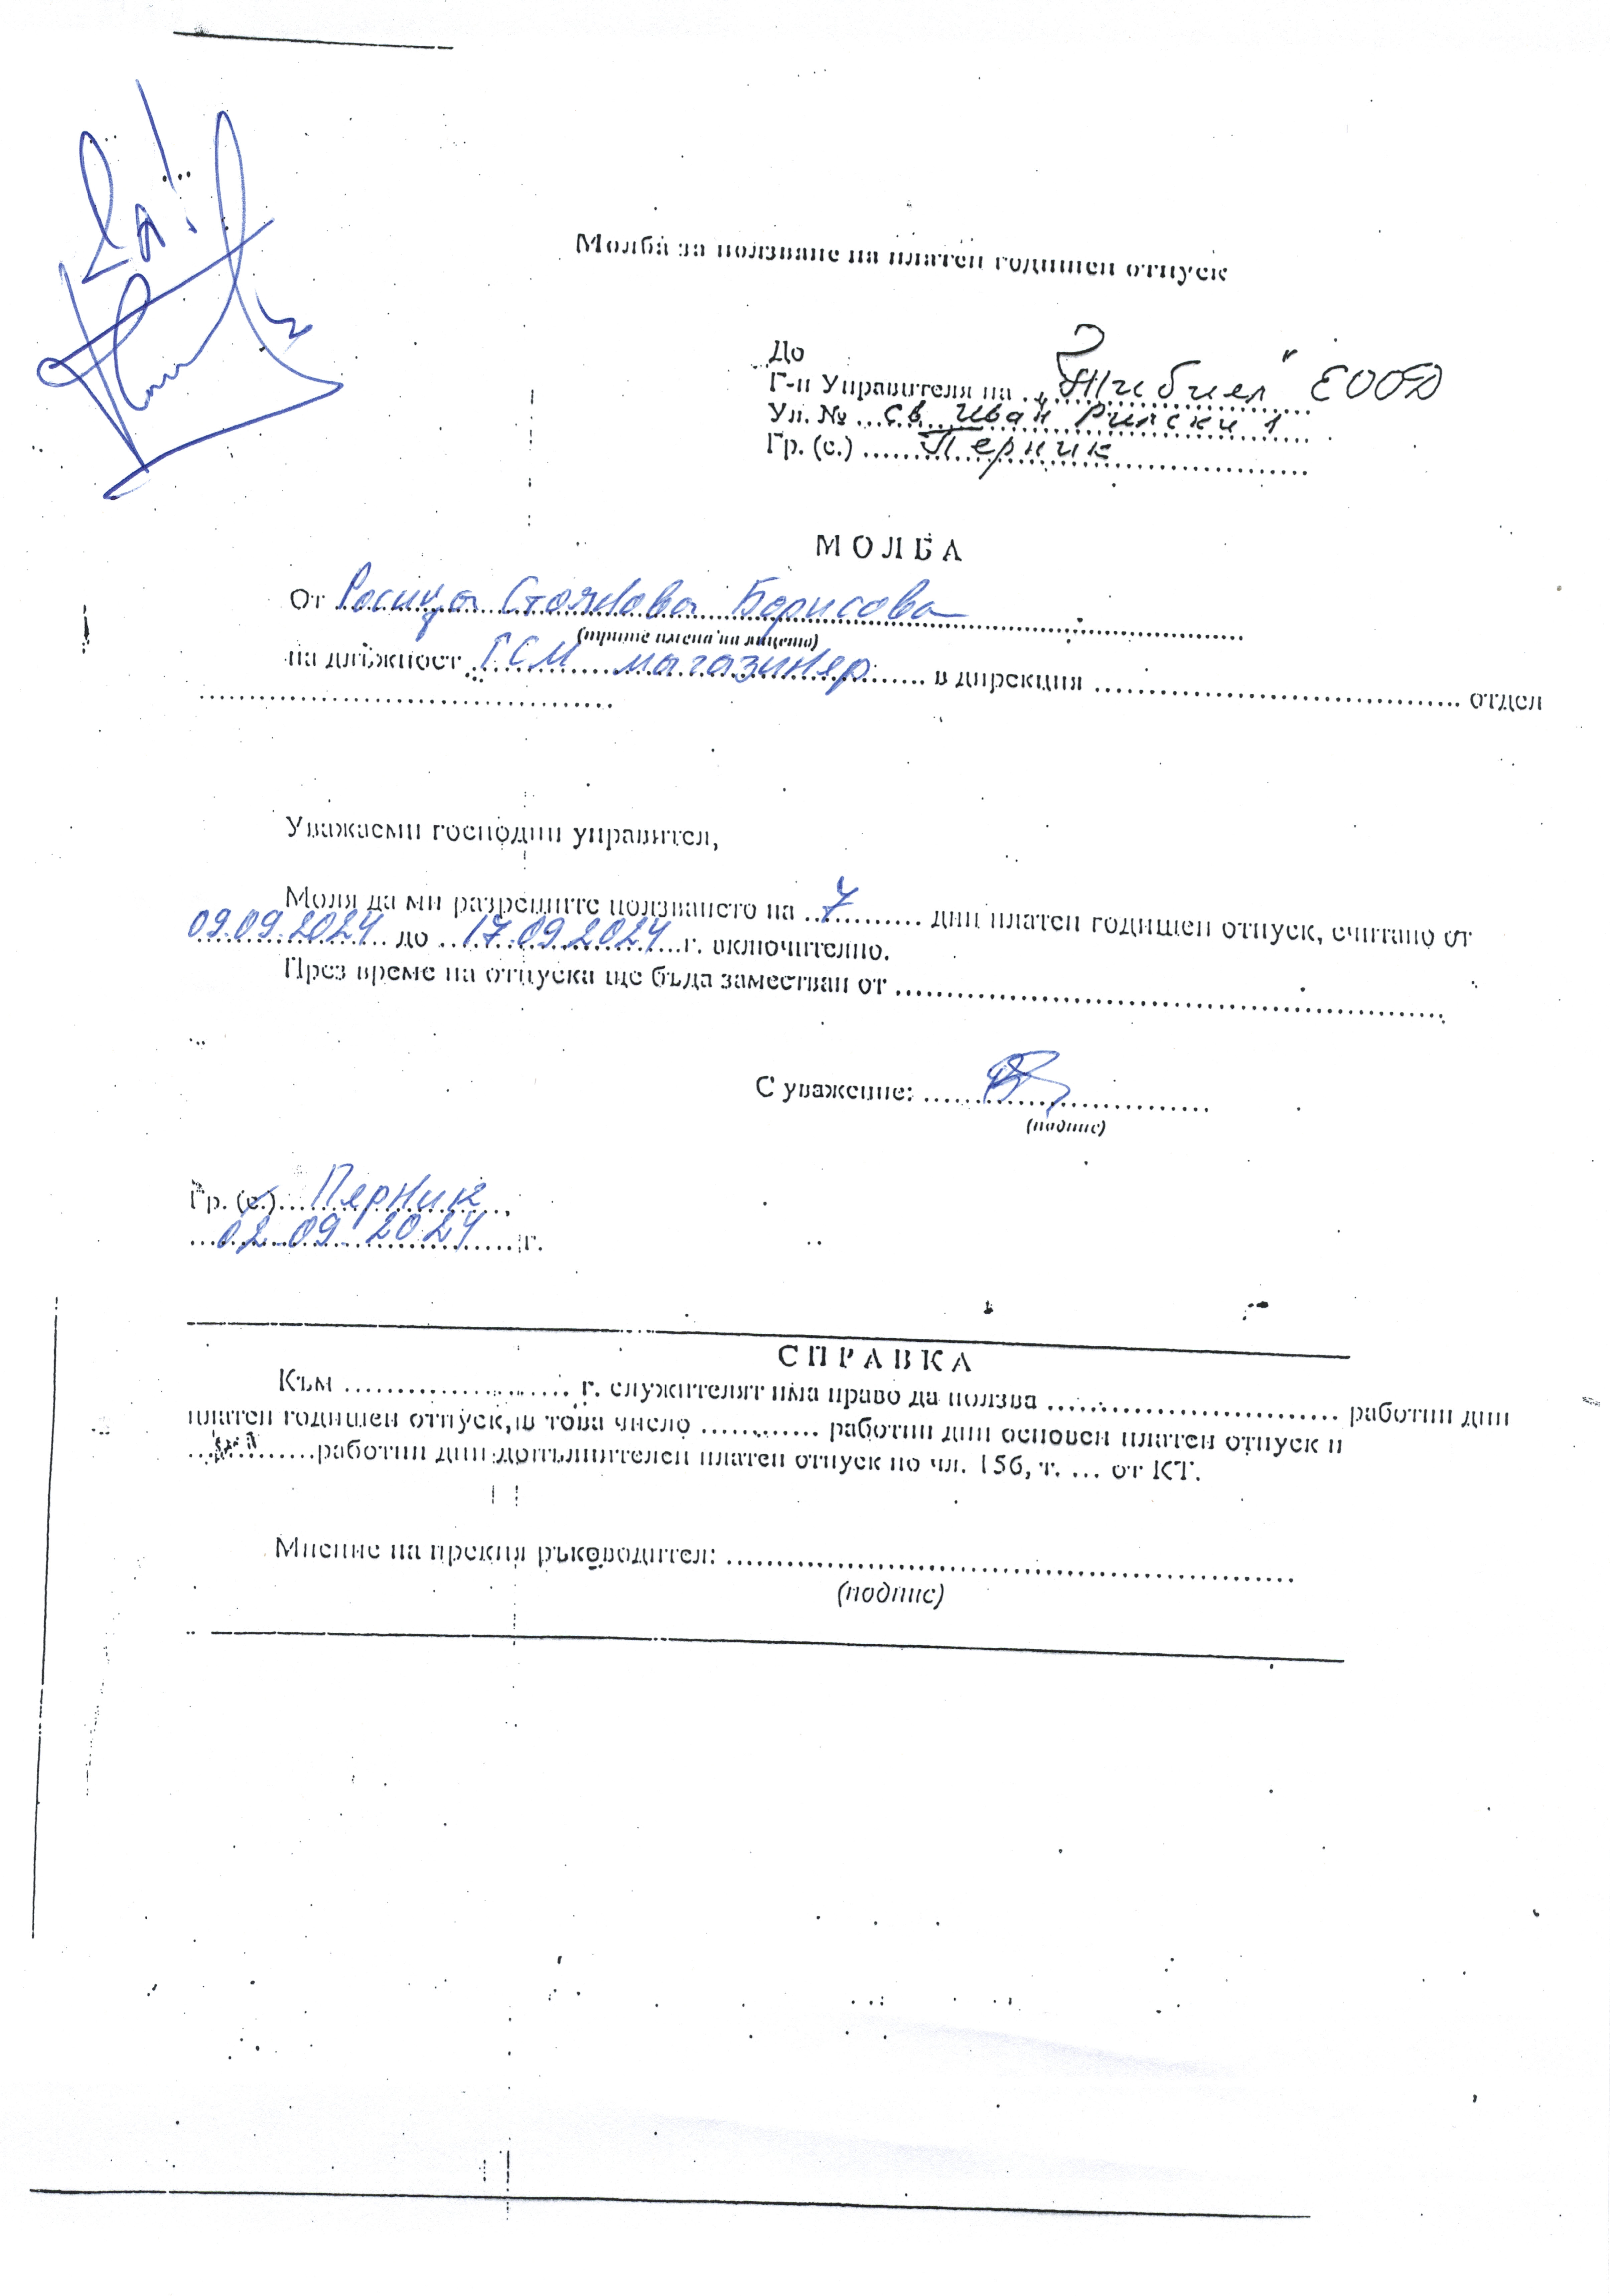 Да!
Молба за ползване на платен годишен отпуск
До
Г-н Управителя на „Тибиел" ЕООД
Ул. № Св. Иван Рилски 1
Гр. (с.) Перник
МОЛБА
От Росица Стоянова Борисова
(трите имена на лицето)
на длъжност ГСМ магазинер в дирекция .................... отдел
....................
Уважаеми господин управител,
Моля да ми разрешите ползването на 7 дни платен годишен отпуск, считано от
09.09.2024 до 17.09.2024 г. включително.
През време на отпуска ще бъда заместван от ....................
С уважение: ....................
(подпис)
Гр. (с.) Перник,
02.09.2024 г.
СПРАВКА
Към .................... г. служителят има право да ползва .................... работни дни
платен годишен отпуск, в това число ............ работни дни основен платен отпуск и
............ работни дни допълнителен платен отпуск по чл. 156, т. ... от КТ.
Мнение на прекия ръководител: ....................
(подпис)